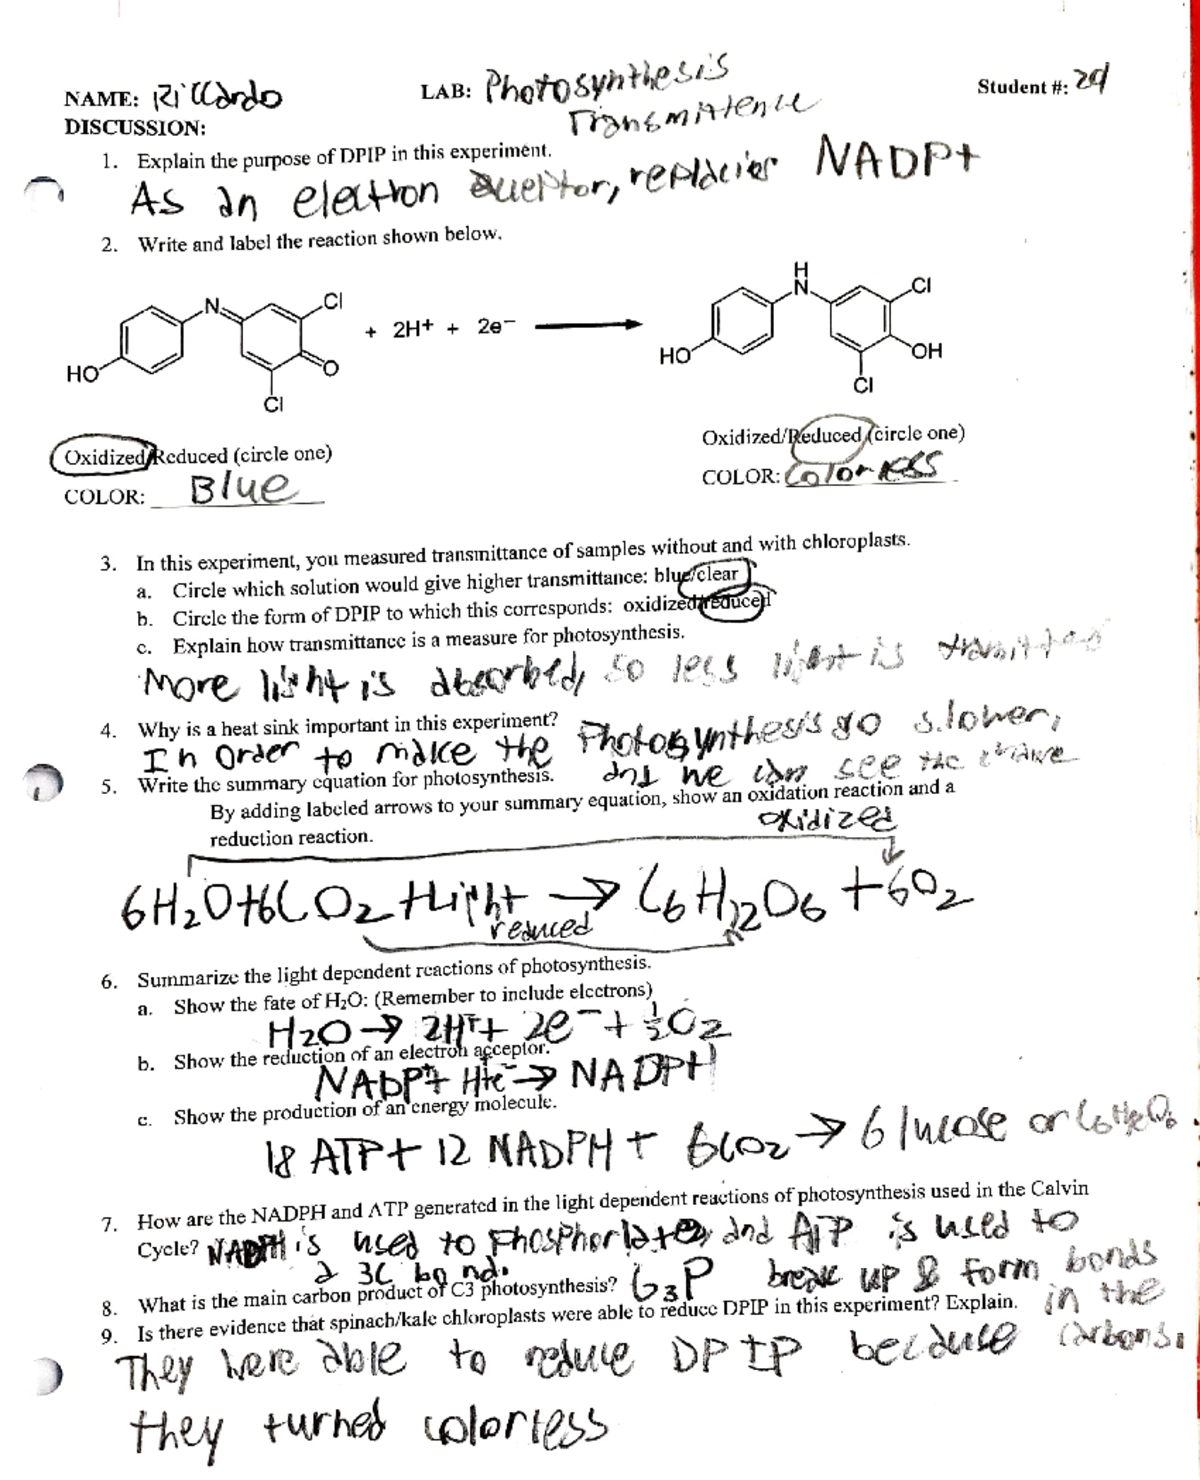 NAME: Riccardo LAB: Photosynthesis Student #: 24
DISCUSSION: Transmittence
1. Explain the purpose of DPIP in this experiment.
As an electron acceptor, replacies NADP+
2. Write and label the reaction shown below.
N Cl O Cl HO + 2H+ + 2e− H N Cl OH Cl HO
Oxidized/Reduced (circle one) Oxidized/Reduced (circle one)
COLOR: Blue COLOR: Colorless
3. In this experiment, you measured transmittance of samples without and with chloroplasts.
a. Circle which solution would give higher transmittance: blue/clear
b. Circle the form of DPIP to which this corresponds: oxidized/reduced
c. Explain how transmittance is a measure for photosynthesis.
More light is absorbed, so less light is
4. Why is a heat sink important in this experiment? Photosynthesis go slower,
In order to make the and we can see the
5. Write the summary equation for photosynthesis.
By adding labeled arrows to your summary equation, show an oxidation reaction and a
reduction reaction. oxidized
6H2O+6CO2+Light → C6H12O6 +6O2
reduced
6. Summarize the light dependent reactions of photosynthesis.
a. Show the fate of H2O: (Remember to include electrons)
H2O → 2H+ + 2e− + ½O2
b. Show the reduction of an electron acceptor.
NADP+ H+e− → NADPH
c. Show the production of an energy molecule.
18 ATP + 12 NADPH + 6CO2 → Glucose or
7. How are the NADPH and ATP generated in the light dependent reactions of photosynthesis used in the Calvin
Cycle? NADPH is used to and ATP is used to
a 3C bond. break up & form bonds
8. What is the main carbon product of C3 photosynthesis? G3P in the
9. Is there evidence that spinach/kale chloroplasts were able to reduce DPIP in this experiment? Explain. carbons.
They were able to reduce DPIP because
they turned colorless